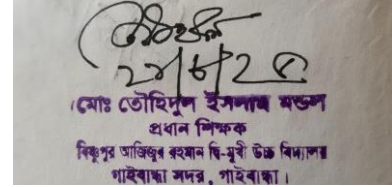 ২৮/৮/২৫
মোঃ তৌহিদুল ইসলাম মন্ডল
প্রধান শিক্ষক
বিষ্ণুপুর আজিজুর রহমান দ্বি-মূখী উচ্চ বিদ্যালয়
গাইবান্ধা সদর, গাইবান্ধা।